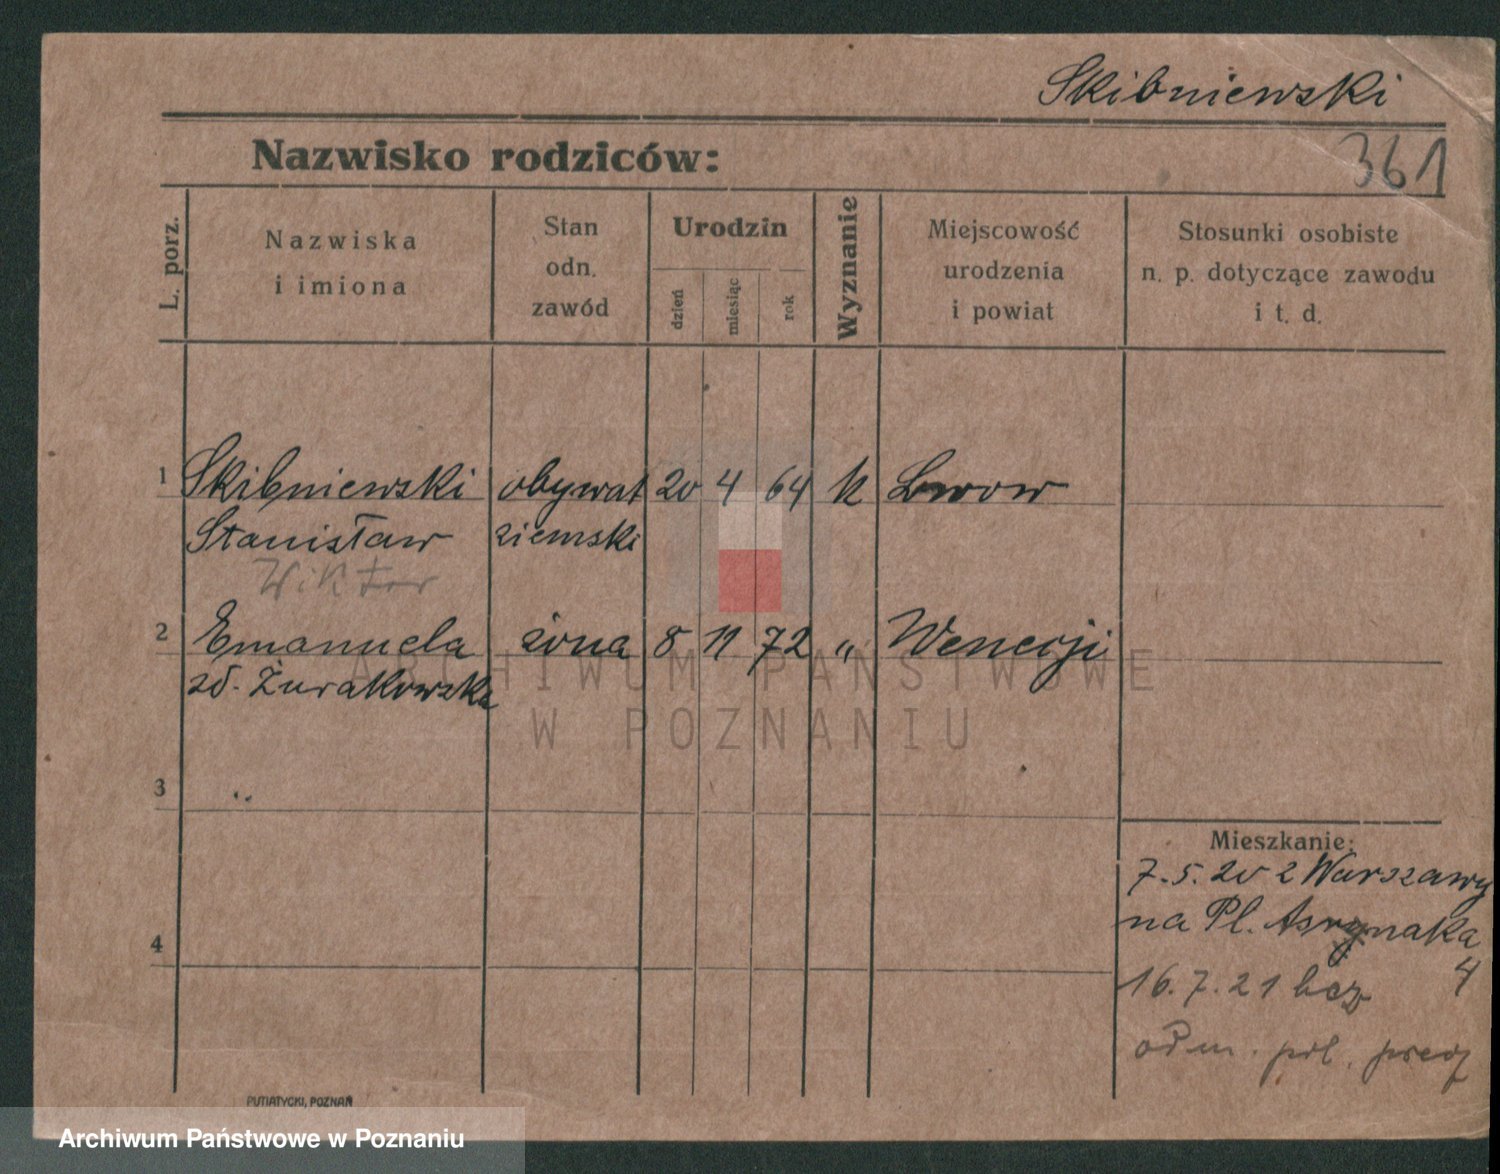 Skibniewski
Nazwisko rodziców:
361
L. porz.
Nazwiska
i imiona
Stan
odn.
zawód
Urodzin
dzień
miesiąc
rok
Wyznanie
Miejscowość
urodzenia
i powiat
Stosunki osobiste
n. p. dotyczące zawodu
i t. d.
1 Skibniewski obywat 20 4 64 k Lwow
Stanisław ziemski
Wiktor
2 Emanuela żona 8 11 72 " Wenecji
zd. Żurakowska
3
4
Mieszkanie:
7.5.20 z Warszawy
na Pl. Asnynaka
4
16.7.21 bez
odm. pol.
PUTIATYCKI, POZNAŃ
ARCHIWUM PAŃSTWOWE
W POZNANIU
Archiwum Państwowe w Poznaniu